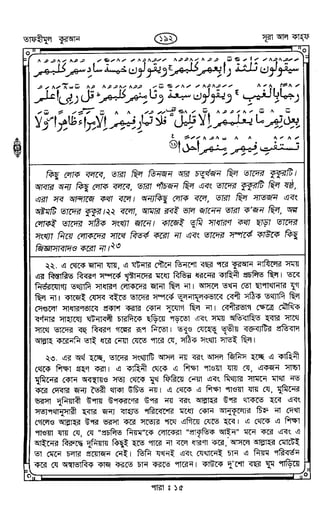 তাফহীমুল কুরআন
১৯২
সূরা আল কাহ্‌ফ
سَيَقُولُونَ ثَلٰثَةٌ رَّابِعُهُمْ كَلْبُهُمْ ۚ وَيَقُولُونَ خَمْسَةٌ سَادِسُهُمْ كَلْبُهُمْ
رَجْمًا بِالْغَيْبِ ۚ وَيَقُولُونَ سَبْعَةٌ وَّثَامِنُهُمْ كَلْبُهُمْ ۚ قُلْ رَّبِّيْ اَعْلَمُ
بِعِدَّتِهِمْ مَّا يَعْلَمُهُمْ اِلَّا قَلِيلٌ ۬ فَلَا تُمَارِ فِيهِمْ اِلَّا مِرَآءً ظَاهِرًا ۪ وَّلَا
تَسْتَفْتِ فِيهِمْ مِّنْهُمْ اَحَدًا
কিছু লোক বলবে, তারা ছিল তিনজন আর চতুর্থজন ছিল তাদের কুকুরটি।
আবার অন্য কিছু লোক বলবে, তারা পাঁচজন ছিল এবং তাদের কুকুরটি ছিল ষষ্ঠ,
এরা সব আন্দাজে কথা বলে। অন্যকিছু লোক বলে, তারা ছিল সাতজন এবং
অষ্টমটি তাদের কুকুর।২২ বলো, আমার রবই ভাল জানেন তারা ক'জন ছিল, অল্প
লোকই তাদের সঠিক সংখ্যা জানে। কাজেই তুমি সাধারণ কথা ছাড়া তাদের
সংখ্যা নিয়ে লোকদের সাথে বিতর্ক করো না এবং তাদের সম্পর্কে কাউকে কিছু
জিজ্ঞাসাবাদও করো না।২৩
২২. এ থেকে জানা যায়, এ ঘটনার পৌনে তিনশো বছর পরে কুরআন নাযিলের সময়
এর বিস্তারিত বিবরণ সম্পর্কে খৃস্টানদের মধ্যে বিভিন্ন ধরনের কাহিনী প্রচলিত ছিল। তবে
নির্ভরযোগ্য তথ্যাদি সাধারণ লোকদের জানা ছিল না। আসলে তখন তো ছাপাখানার যুগ
ছিল না। কাজেই যেসব বইতে তাদের সম্পর্কে তুলনামূলকভাবে বেশী সঠিক তথ্যাদি ছিল
সেগুলো সাধারণভাবে প্রকাশ করার কোন সুযোগ ছিল না। বেশীরভাগ ক্ষেত্রে মৌখিক
বর্ণনার সাহায্যে ঘটনাবলী চারদিকে ছড়িয়ে পড়তো এবং সময় অতিবাহিত হবার সাথে
সাথে তাদের বহু বিবরণ গল্পের রূপ নিতো। তবুও যেহেতু তৃতীয় বক্তব্যটির প্রতিবাদ
আল্লাহ করেননি তাই ধরে নেয়া যেতে পারে যে, সঠিক সংখ্যা সাতই ছিল।
২৩. এর অর্থ হচ্ছে, তাদের সংখ্যাটি আসল নয় বরং আসল জিনিস হচ্ছে এ কাহিনী
থেকে শিক্ষা গ্রহণ করা। এ কাহিনী থেকে এ শিক্ষা পাওয়া যায় যে, একজন সাচ্চা
মুমিনের কোন অবস্থায়ও সত্য থেকে মুখ ফিরিয়ে নেয়া এবং মিথ্যার সামনে মাথা নত
করে দেবার জন্য তৈরী থাকা উচিত নয়। এ থেকে এ শিক্ষা পাওয়া যায় যে, মুমিনের
ভরসা দুনিয়াবী উপায় উপকরণের উপর নয় বরং আল্লাহর উপর থাকতে হবে এবং
সত্যপথানুসারী হবার জন্য বাহ্যত পরিবেশের মধ্যে কোন আনুকূল্যের চিহ্ন না দেখা
গেলেও আল্লাহর উপর ভরসা করে সত্যের পথে এগিয়ে যেতে হবে। এ থেকে এ শিক্ষা
পাওয়া যায় যে, যে "প্রচলিত নিয়ম"কে লোকেরা "প্রাকৃতিক আইন" মনে করে এবং এ
আইনের বিরুদ্ধে দুনিয়ায় কিছুই হতে পারে না বলে ধারণা করে, আসলে আল্লাহর মোটেই
তা মেনে চলার প্রয়োজন নেই। তিনি যখনই এবং যেখানেই চান এ নিয়ম পরিবর্তন
করে যে অস্বাভাবিক কাজ করতে চান করতে পারেন। কাউকে দু'শো বছর ঘুম পাড়িয়ে
পারা : ১৫